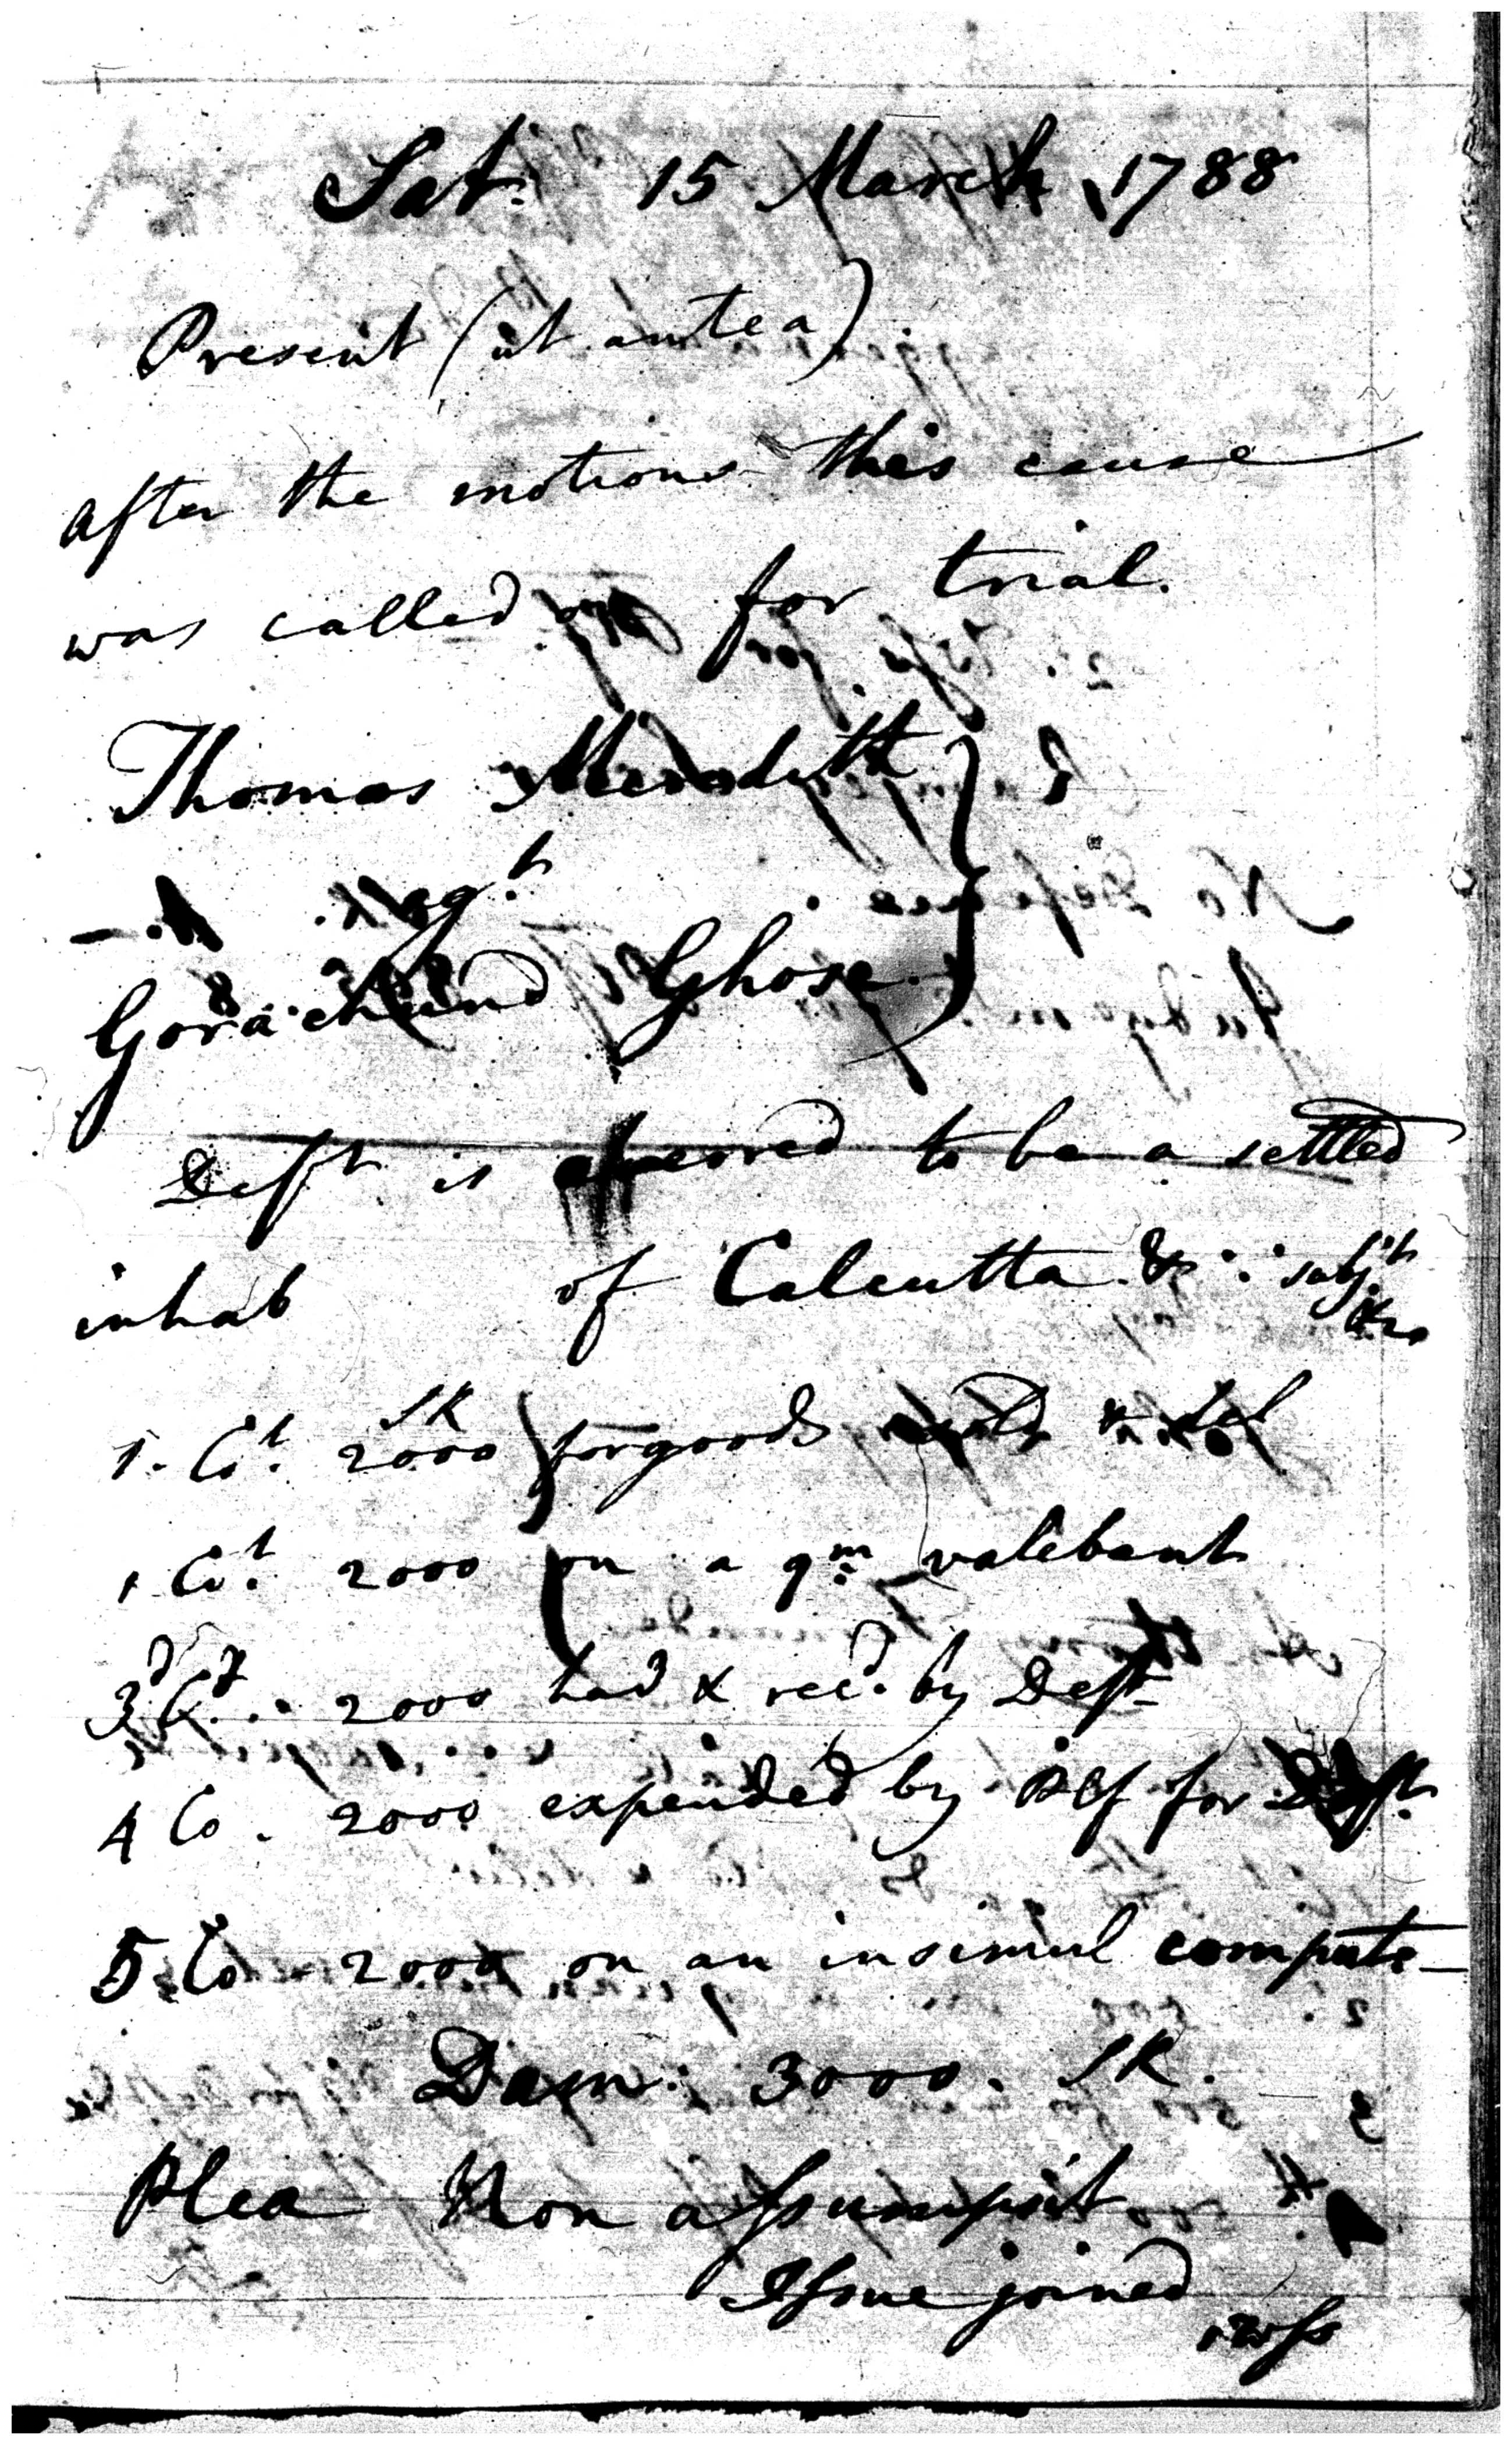 Sat. 15 March 1788
Present (ut antea)
after the motions this cause
was called on for trial.
Thomas Meredith
agt
Gorachund Ghose
Deft is averred to be a settled
inhab of Calcutta & subjt
&c
1. Cot. 2000 SR for goods sold &
1 Cot. 2000 on a qm valebant
3d Ct. 2000 had & recd. by Deft
4 Co. 2000 expended by Plf for Deft.
5 Co 2000 on an insimul compute
Dam. 3000. SR.
Plea Non assumpsit
Issue joined